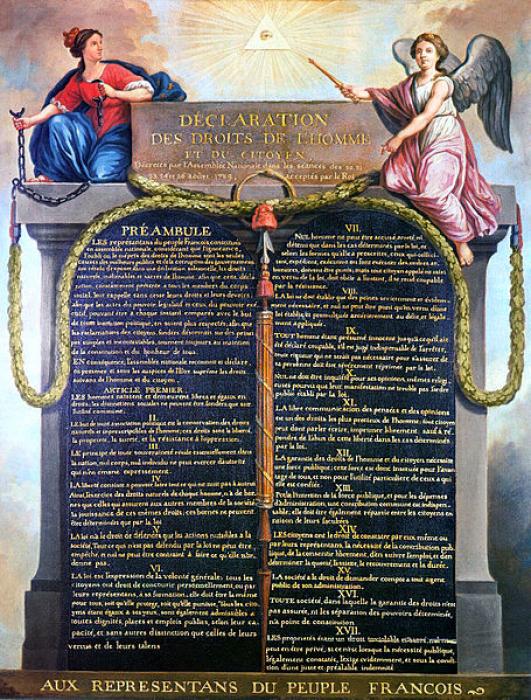 DÉCLARATION
DES DROITS DE L'HOMME
ET DU CITOYEN
Décrétés par l'Assemblée Nationale dans les séances des 20, 21
23, 24 et 26 août 1789, acceptés par le Roi
PRÉAMBULE
LES représentans du peuple François, constitués
en assemblée nationale, considérant que l'ignorance,
l'oubli ou le mépris des droits de l'homme sont les seules
causes des malheurs publics et de la corruption des gouvernemens
ont résolu d'exposer dans une déclaration solemnelle, les droits
naturels, inaliénables et sacrés de l'homme; afin que cette décla-
ration, constamment présente à tous les membres du corps
social, leur rappelle sans cesse leurs droits et leurs devoirs;
afin que les actes du pouvoir législatif et ceux du pouvoir exé-
cutif, pouvant être à chaque instant comparés avec le but
de toute institution politique, en soient plus respectés; afin que
les réclamations des citoyens, fondées désormais sur des princi-
pes simples et incontestables, tournent toujours au maintien
de la constitution et du bonheur de tous.
EN conséquence, l'assemblée nationale reconnoit et déclare,
en présence et sous les auspices de l'Être suprême les droits
suivans de l'homme et du citoyen.
ARTICLE PREMIER.
LES hommes naissent et demeurent libres et égaux en
droits; les distinctions sociales ne peuvent être fondées que sur
l'utilité commune.
II.
LE but de toute association politique est la conservation des droits
naturels et imprescriptibles de l'homme; ces droits sont la liberté,
la propriété, la sureté, et la résistance à l'oppression.
III.
LE principe de toute souveraineté réside essentiellement dans
la nation, nul corps, nul individu ne peut exercer d'autorité
qui n'en émane expressement.
IV.
LA liberté consiste à pouvoir faire tout ce qui ne nuit pas à autrui
Ainsi, l'exercice des droits naturels de chaque homme, n'a de bor-
nes que celles qui assurent aux autres membres de la société
la jouissance de ces mêmes droits; ces bornes ne peuvent
être déterminées que par la loi
V.
LA loi n'a le droit de défendre que les actions nuisibles à la
société. Tout ce qui n'est pas défendu par la loi ne peut être
empêché, et nul ne peut être contraint à faire ce qu'elle n'or-
donne pas.
VI.
LA loi est l'expression de la volonté générale; tous les
citoyens ont droit de concourir personnellement, ou par
leurs représentans, à sa formation; elle doit être la même
pour tous, soit qu'elle protège, soit qu'elle punisse. Tous les cito-
yens étant égaux à ses yeux, sont également admissibles à
toutes dignités, places et emplois publics, selon leur ca-
pacité, et sans autres distinction que celles de leurs
vertus et de leurs talens
VII.
NUL homme ne peut être accusé, arrêté ni
détenu que dans les cas déterminés par la loi, et
selon les formes qu'elle a prescrites, ceux qui sollici-
tent, expédient, exécutent ou font exécuter des ordres ar-
bitraires, doivent être punis; mais tout citoyen appelé ou saisi
en vertu de la loi, doit obéir à l'instant, il se rend coupable
par la résistance.
VIII.
LA loi ne doit établir que des peines strictement et évidem-
ment nécessaires, et nul ne peut être puni qu'en vertu d'une
loi établie et promulguée antérieurement au délit, et légale-
ment appliquée.
IX.
TOUT homme étant présumé innocent jusqu'à ce qu'il ait
été déclaré coupable, s'il est jugé indispensable de l'arrêter,
toute rigueur qui ne seroit pas nécessaire pour s'assurer de
sa personne doit être sévèrement réprimée par la loi.
X.
NUL ne doit être inquiété pour ses opinions, mêmes religi-
euses pourvu que leur manifestation ne trouble pas l'ordre
public établi par la loi.
XI.
LA libre communication des pensées et des opinions
est un des droits les plus précieux de l'homme; tout citoyen
peut donc parler écrire, imprimer librement: sauf à ré-
pondre de l'abus de cette liberté dans les cas déterminés
par la loi.
XII.
LA garantie des droits de l'homme et du citoyen nécessite
une force publique; cette force est donc instituée pour l'avan-
tage de tous, et non pour l'utilité particulière de ceux à qui
elle est confiée.
XIII.
POUR l'entretien de la force publique, et pour les dépenses
d'administration, une contribution commune est indispen-
sable; elle doit être également répartie entre les citoyens en
raison de leurs facultées
XIV.
LES citoyens ont le droit de constater par eux même ou
par leurs représentans, la nécessité de la contribution pub-
lique, de la consentir librement, d'en suivre l'emploi, et d'en
déterminer la quotité, l'assiette, le recouvrement et la durée.
XV.
LA société a le droit de demander compte à tout agent
public de son administration.
XVI.
TOUTE société, dans laquelle la garantie des droits n'est
pas assurée, ni la séparation des pouvoirs déterminée,
n'a point de constitution
XVII.
LES propriétés étant un droit inviolable et sacré, nul ne
peut en être privé, si ce n'est lorsque la nécessité publique,
légalement constatée, l'exige évidemment, et sous la condi-
tion d'une juste et préalable indemnité.
AUX REPRESENTANS DU PEUPLE FRANCOIS